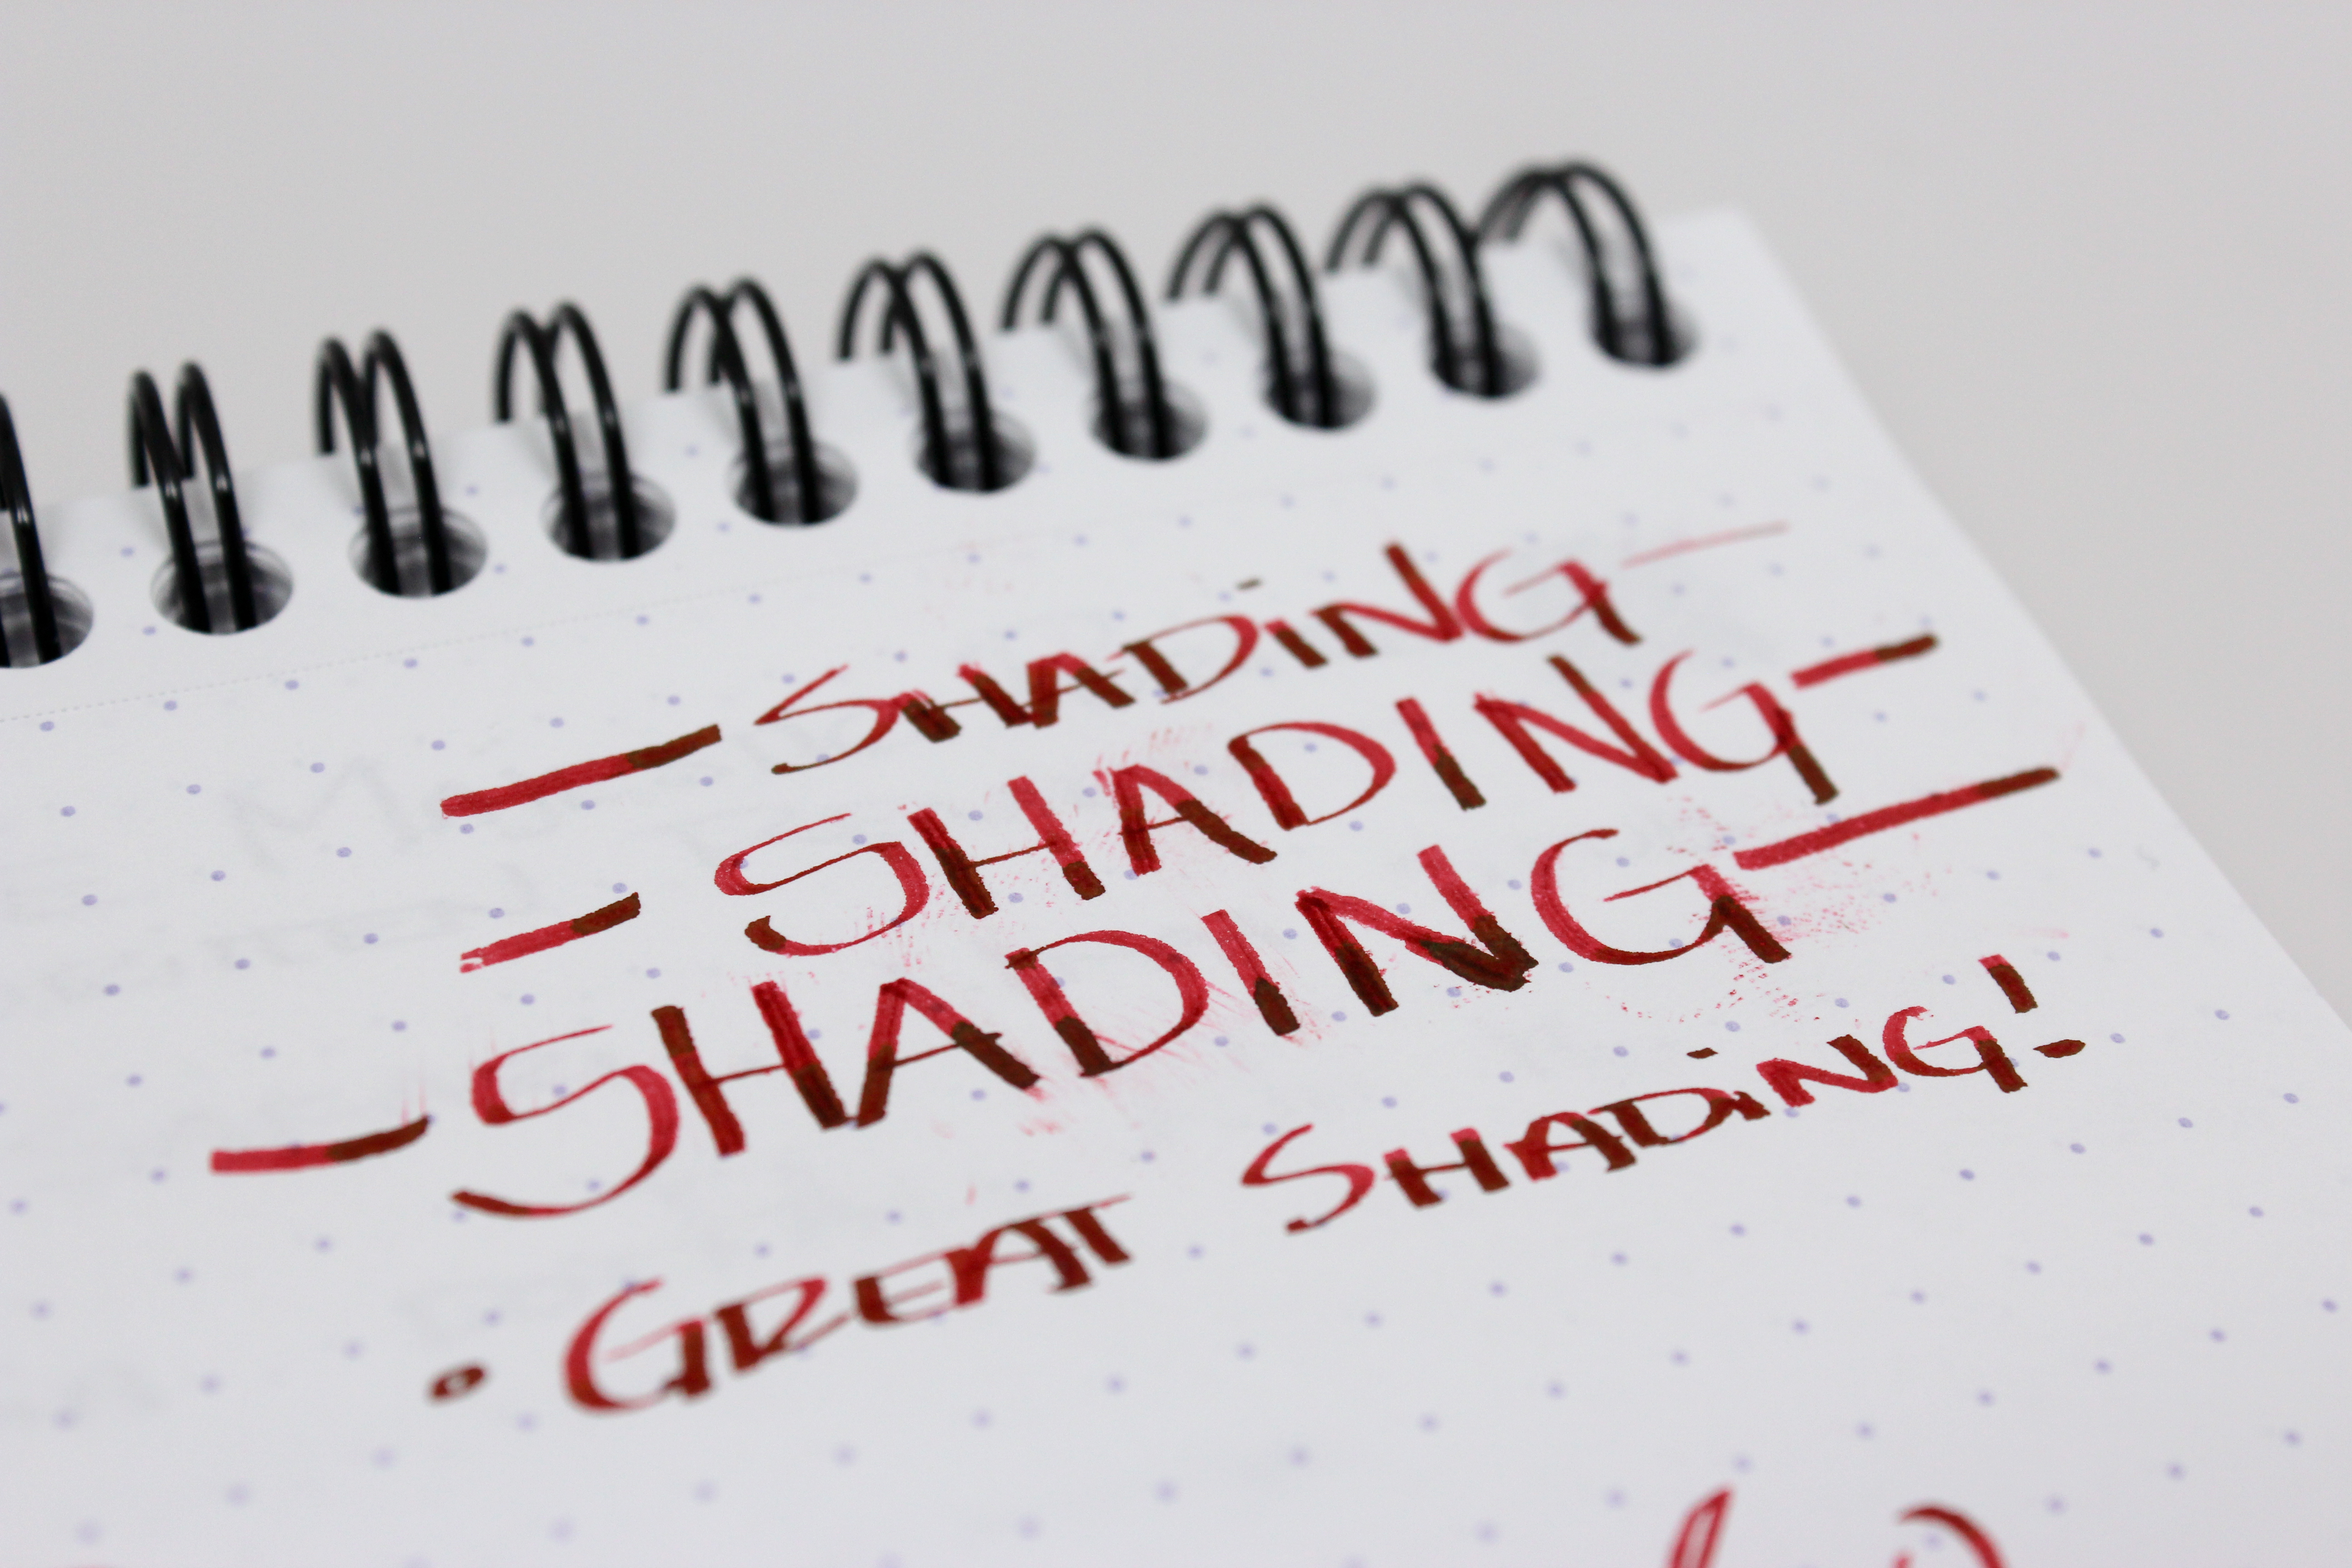 — SHADiNG —
- SHADING -
- SHADING —
• GREAT SHADiNG!